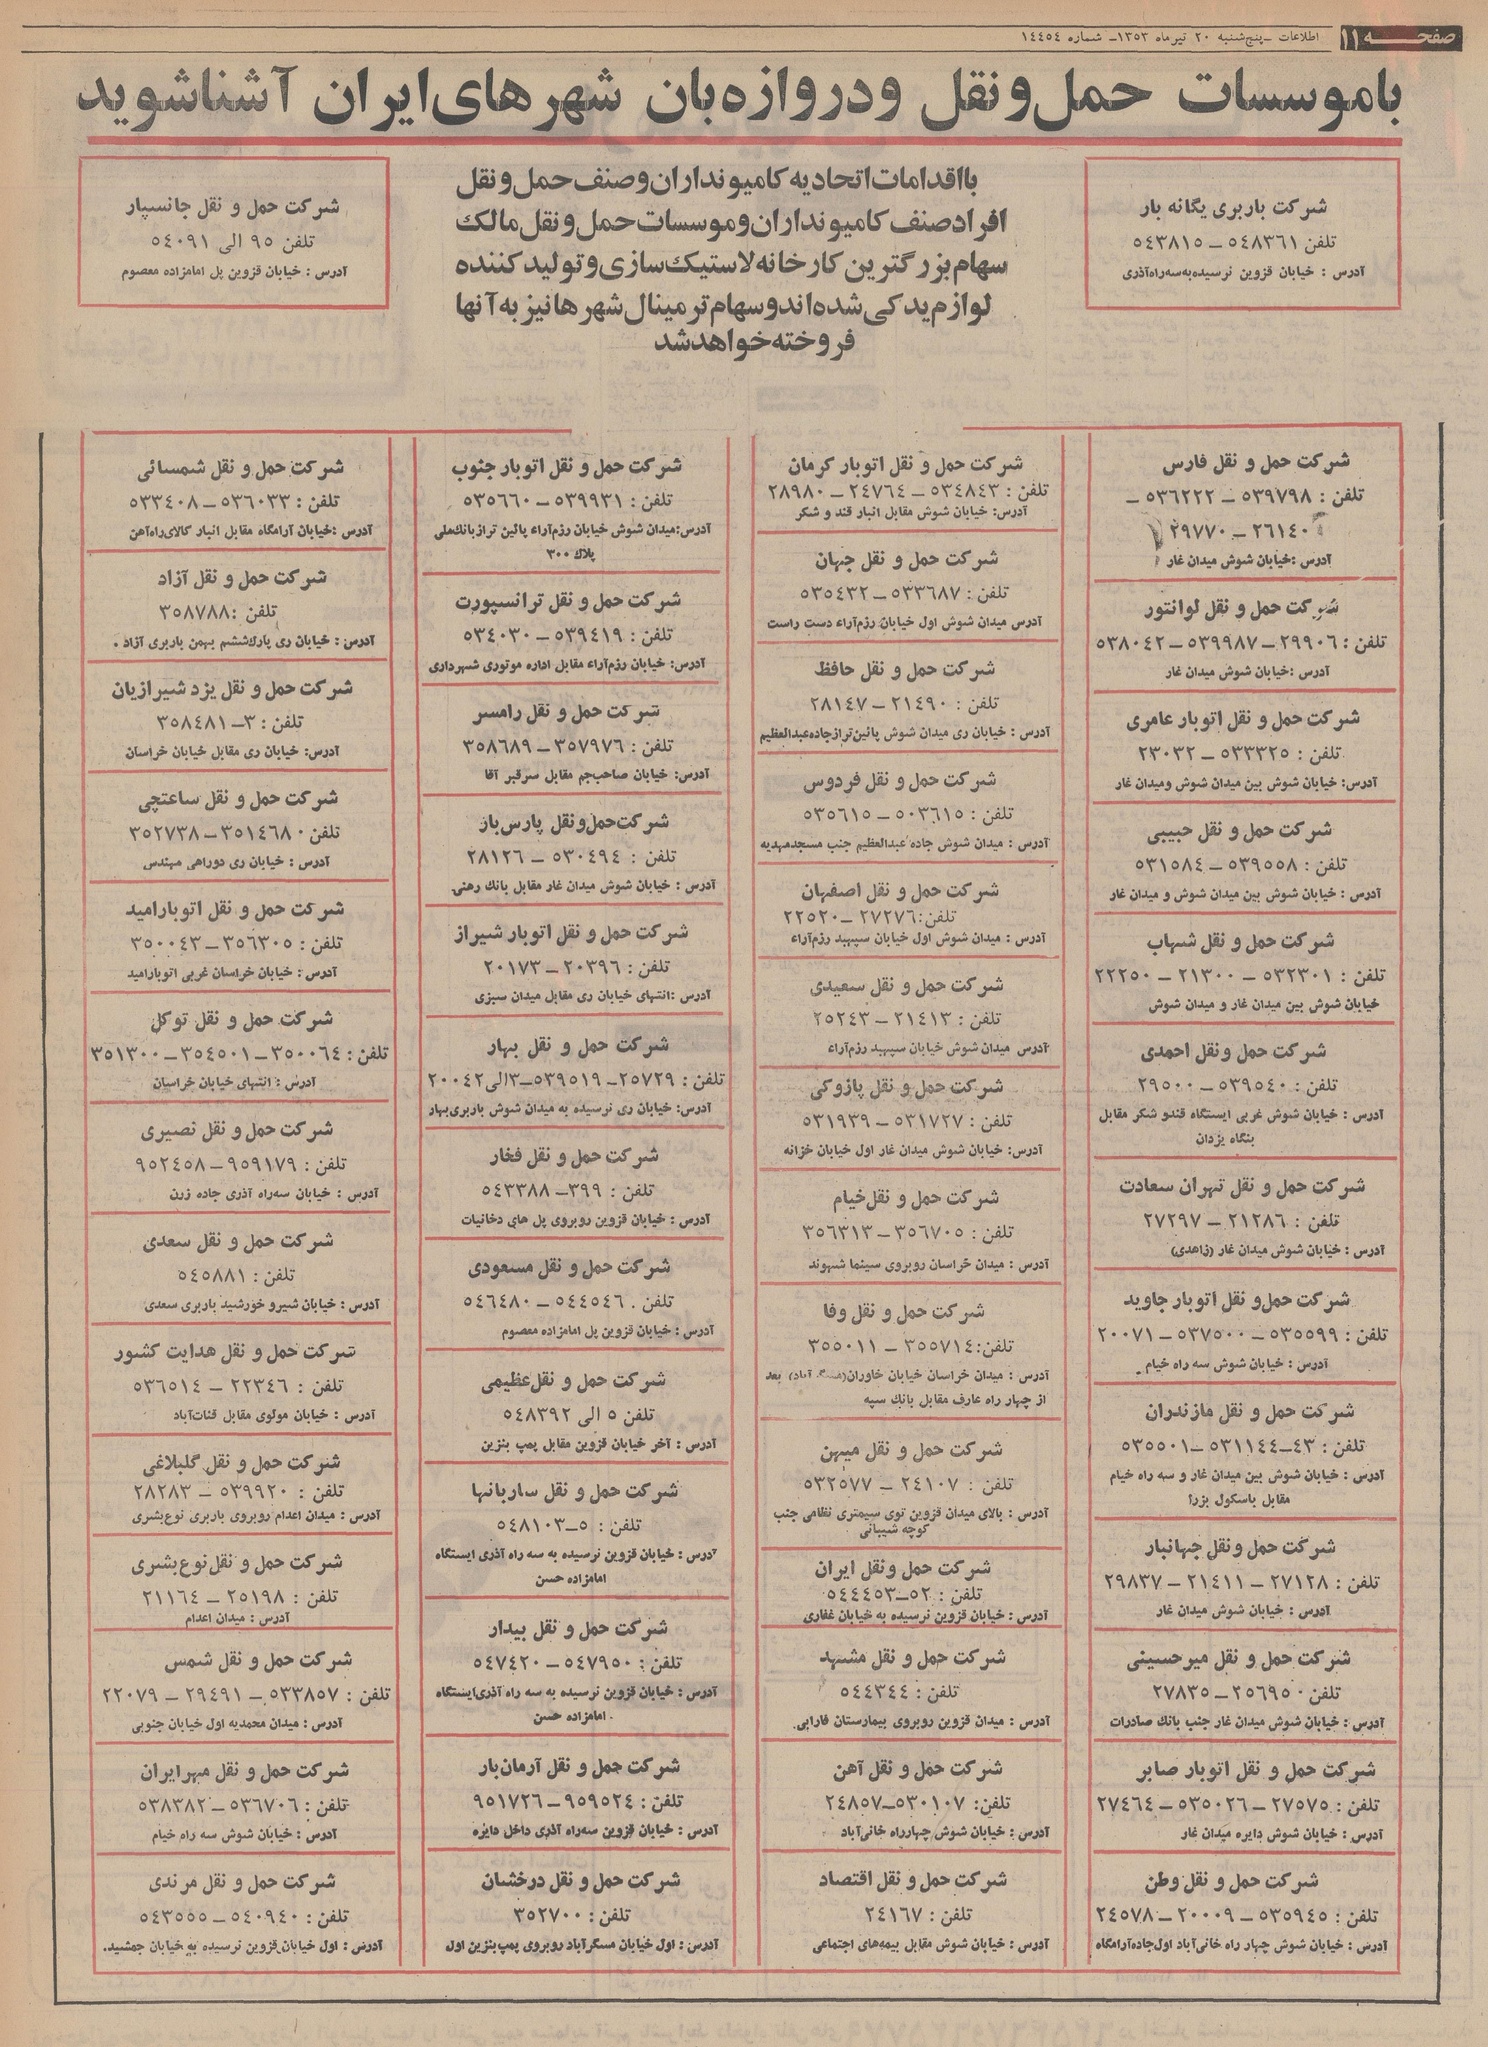 صفحه ۱۱
اطلاعات ـ پنج‌شنبه ۲۰ تیرماه ۱۳۵۳ـ شماره ۱۴۴۵۴
باموسسات حمل‌و‌نقل ودروازه‌بان شهرهای‌ایران آشناشوید
شرکت باربری یگانه بار
تلفن ۵۴۸۳۶۱ – ۵۴۳۸۱۵
آدرس : خیابان قزوین نرسیده‌به‌سه‌راه‌آذری
بااقدامات‌اتحادیه‌کامیونداران‌وصنف‌حمل‌ونقل
افرادصنف‌کامیونداران‌وموسسات‌حمل‌ونقل‌مالک
سهام‌بزرگترین‌کارخانه‌لاستیک‌سازی‌وتولیدکننده
لوازم‌یدکی‌شده‌اندوسهام‌ترمینال‌شهرهانیز‌به‌آنها
فروخته‌خواهدشد
شرکت حمل و نقل جانسپار
تلفن ۹۵ الی ۵۴۰۹۱
آدرس : خیابان قزوین پل امامزاده معصوم
شرکت حمل و نقل فارس
تلفن : ۵۳۹۷۹۸ – ۵۳۶۲۲۲ –
۲۶۱۴۰ – ۲۹۷۷۰
آدرس :خیابان شوش میدان غار
شرکت حمل و نقل لوانتور
تلفن : ۲۹۹۰۶ – ۵۳۹۹۸۷ – ۵۳۸۰۴۲
آدرس :خیابان شوش میدان غار
شرکت حمل و نقل اتوبار عامری
تلفن : ۵۳۳۳۲۵ – ۲۳۰۳۲
آدرس: خیابان شوش بین میدان شوش ومیدان غار
شرکت حمل و نقل حبیبی
تلفن : ۵۳۹۵۵۸ – ۵۳۱۵۸۴
آدرس : خیابان شوش بین میدان شوش و میدان غار
شرکت حمل و نقل شهاب
تلفن : ۵۳۲۳۰۱ – ۲۱۳۰۰ – ۲۲۲۵۰
خیابان شوش بین میدان غار و میدان شوش
شرکت حمل ونقل احمدی
تلفن : ۵۳۹۵۴۰ – ۲۹۵۰۰
آدرس : خیابان شوش غربی ایستگاه قندو شکر مقابل
بنگاه یزدان
شرکت حمل و نقل تهران سعادت
تلفن : ۲۱۲۸۶ – ۲۷۲۹۷
آدرس : خیابان شوش میدان غار (زاهدی)
شرکت حمل‌و نقل اتوبار جاوید
تلفن : ۵۳۵۵۹۹ – ۵۳۷۵۰۰ – ۲۰۰۷۱
آدرس : خیابان شوش سه راه خیام
شرکت حمل و نقل مازندران
تلفن : ۴۳–۵۳۱۱۴۴ –۵۳۵۵۰۱
آدرس : خیابان شوش بین میدان غار و سه راه خیام
مقابل باسکول
شرکت حمل ونقل جهانبار
تلفن : ۲۷۱۲۸ – ۲۱۴۱۱ – ۲۹۸۳۷
آدرس : خیابان شوش میدان غار
شرکت حمل و نقل میرحسینی
تلفن ۲۵۶۹۵۰ – ۲۷۸۳۵
آدرس : خیابان شوش میدان غار جنب بانك صادرات
شرکت حمل و نقل اتوبار صابر
تلفن : ۲۷۵۷۵ – ۵۳۵۰۲۶ – ۲۷۴۶۴
آدرس : خیابان شوش دایره میدان غار
شرکت حمل و نقل وطن
تلفن : ۵۳۵۹۴۵ – ۲۰۰۰۹ – ۲۴۵۷۸
آدرس : خیابان شوش چهار راه خانی‌آباد اول‌جاده‌آرامگاه
شرکت حمل و نقل اتوبار کرمان
تلفن : ۵۳۴۸۴۳ – ۲۴۷۶۴ – ۲۸۹۸۰
آدرس: خیابان شوش مقابل انبار قند و شکر
شرکت حمل و نقل جهان
تلفن : ۵۳۳۶۸۷ – ۵۳۵۴۳۲
آدرس میدان شوش اول خیابان رزم‌آراء دست راست
شرکت حمل و نقل حافظ
تلفن : ۲۱۴۹۰ – ۲۸۱۴۷
آدرس : خیابان ری میدان شوش پائین‌تراز‌جاده‌عبدالعظیم
شرکت حمل و نقل فردوس
تلفن : ۵۰۳۶۱۵ – ۵۳۵۶۱۵
آدرس : میدان شوش جاده عبدالعظیم جنب مسجدمهدیه
شرکت حمل و نقل اصفهان
تلفن:۲۷۲۷۶ –۲۲۵۲۰
آدرس : میدان شوش اول خیابان سپهبد رزم‌آراء
شرکت حمل و نقل سعیدی
تلفن : ۲۱۴۱۳ – ۲۵۲۴۳
آدرس میدان شوش خیابان سپهبد رزم‌آراء
شرکت حمل و نقل پازوکی
تلفن : ۵۳۱۷۲۷ – ۵۳۱۹۳۹
آدرس: خیابان شوش میدان غار اول خیابان خزانه
شرکت حمل و نقل‌خیام
تلفن : ۳۵۶۷۰۵ – ۳۵۶۳۱۳
آدرس : میدان خراسان روبروی سینما شهوند
شرکت حمل و نقل وفا
تلفن:۳۵۵۷۱۴ – ۳۵۵۰۱۱
آدرس : میدان خراسان خیابان خاوران(مسگرآباد) بعد
از چهار راه عارف مقابل بانك سپه
شرکت حمل و نقل میهن
تلفن : ۲۴۱۰۷ – ۵۳۲۵۷۷
آدرس : بالای میدان قزوین توی سیمتری نظامی جنب
کوچه شیبانی
شرکت حمل ونقل ایران
تلفن : ۵۲–۵۴۴۴۵۳
آدرس : خیابان قزوین نرسیده به خیابان غفاری
شرکت حمل و نقل مشهد
تلفن : ۵۴۴۳۴۴
آدرس : میدان قزوین روبروی بیمارستان فارابی
شرکت حمل و نقل آهن
تلفن: ۵۳۰۱۰۷–۲۴۸۵۷
آدرس : خیابان شوش چهارراه خانی‌آباد
شرکت حمل و نقل اقتصاد
تلفن : ۲۴۱۶۷
آدرس : خیابان شوش مقابل بیمه‌های اجتماعی
شرکت حمل و نقل اتوبار جنوب
تلفن : ۵۳۹۹۳۱ – ۵۳۵۶۶۰
آدرس:میدان شوش خیابان رزم‌آراء پائین ترازبانك‌ملی
پلاك ۳۰۰
شرکت حمل و نقل ترانسپورت
تلفن : ۵۳۹۴۱۹ – ۵۳۴۰۳۰
آدرس: خیابان رزم‌آراء مقابل اداره موتوری شهرداری
شرکت حمل و نقل رامسر
تلفن : ۳۵۷۹۷۶ – ۳۵۸۶۸۹
آدرس: خیابان صاحب‌جم مقابل سرقبر آقا
شرکت‌حمل‌ونقل پارس‌بار
تلفن : ۵۳۰۴۹۴ – ۲۸۱۲۶
آدرس : خیابان شوش میدان غار مقابل بانك رهنی
شرکت حمل و نقل اتوبار شیراز
تلفن : ۲۰۳۹۶ – ۲۰۱۷۳
آدرس :انتهای خیابان ری مقابل میدان سبزی
شرکت حمل و نقل بهار
تلفن : ۲۵۷۲۹ – ۵۳۹۵۱۹ –۳الی۲۰۰۴۲
آدرس: خیابان ری نرسیده به میدان شوش باربری‌بهار
شرکت حمل و نقل فخار
تلفن : ۳۹۹ – ۵۴۳۳۸۸
آدرس : خیابان قزوین روبروی پل های دخانیات
شرکت حمل و نقل مسعودی
تلفن . ۵۴۴۵۴۶ – ۵۴۶۴۸۰
آدرس : خیابان قزوین پل امامزاده معصوم
شرکت حمل و نقل‌عظیمی
تلفن ۵ الی ۵۴۸۳۹۲
آدرس : آخر خیابان قزوین مقابل پمپ بنزین
شرکت حمل و نقل ساربانها
تلفن : ۵–۵۴۸۱۰۳
آدرس : خیابان قزوین نرسیده به سه راه آذری ایستگاه
امامزاده حسن
شرکت حمل و نقل بیدار
تلفن : ۵۴۷۹۵۰ – ۵۴۷۴۲۰
آدرس : خیابان قزوین نرسیده به سه راه آذری‌ایستگاه
امامزاده حسن
شرکت حمل و نقل آرمان‌بار
تلفن : ۹۵۹۵۲۴ – ۹۵۱۷۲۶
آدرس : خیابان قزوین سه‌راه آذری داخل دایره
شرکت حمل و نقل درخشان
تلفن : ۳۵۲۷۰۰
آدرس: اول خیابان مسگرآباد روبروی پمپ‌بنزین اول
شرکت حمل و نقل شمسائی
تلفن : ۵۳۶۰۳۳ – ۵۳۳۴۰۸
آدرس :خیابان آرامگاه مقابل انبار کالای‌راه‌آهن
شرکت حمل و نقل آزاد
تلفن :۳۵۸۷۸۸
آدرس : خیابان ری پارك‌ششم بهمن باربری آزاد .
شرکت حمل و نقل یزد شیرازیان
تلفن : ۳–۳۵۸۴۸۱
آدرس: خیابان ری مقابل خیابان خراسان
شرکت حمل و نقل ساعتچی
تلفن ۳۵۱۴۶۸۰ – ۳۵۲۷۳۸
آدرس : خیابان ری دوراهی مهندس
شرکت حمل و نقل اتوبارامید
تلفن : ۳۵۶۳۰۵ – ۳۵۰۰۴۳
آدرس : خیابان خراسان غربی اتوبارامید
شرکت حمل و نقل توکل
تلفن : ۳۵۰۰۶۴ – ۳۵۴۵۰۱ – ۳۵۱۳۰۰
آدرس : انتهای خیابان خراسان
شرکت حمل و نقل نصیری
تلفن : ۹۵۹۱۷۹ – ۹۵۲۴۵۸
آدرس : خیابان سه‌راه آذری جاده زرن
شرکت حمل و نقل سعدی
تلفن : ۵۴۵۸۸۱
آدرس : خیابان شیرو خورشید باربری سعدی
شرکت حمل و نقل هدایت کشور
تلفن : ۲۲۳۴۶ – ۵۳۶۵۱۴
آدرس : خیابان مولوی مقابل قنات‌آباد
شرکت حمل و نقل گلبلاغی
تلفن : ۵۳۹۹۲۰ – ۲۸۲۸۳
آدرس : میدان اعدام روبروی باربری نوع‌بشری
شرکت حمل و نقل نوع‌بشری
تلفن : ۲۵۱۹۸ – ۲۱۱۶۴
آدرس : میدان اعدام
شرکت حمل و نقل شمس
تلفن : ۵۳۳۸۵۷ – ۲۹۴۹۱ – ۲۲۰۷۹
آدرس : میدان محمدیه اول خیابان جنوبی
شرکت حمل و نقل مهرایران
تلفن : ۵۳۶۷۰۶ – ۵۳۸۳۸۲
آدرس : خیابان شوش سه راه خیام
شرکت حمل و نقل مرندی
تلفن : ۵۴۰۹۴۰ – ۵۴۳۵۵۵
آدرس : اول خیابان قزوین نرسیده به خیابان جمشید.